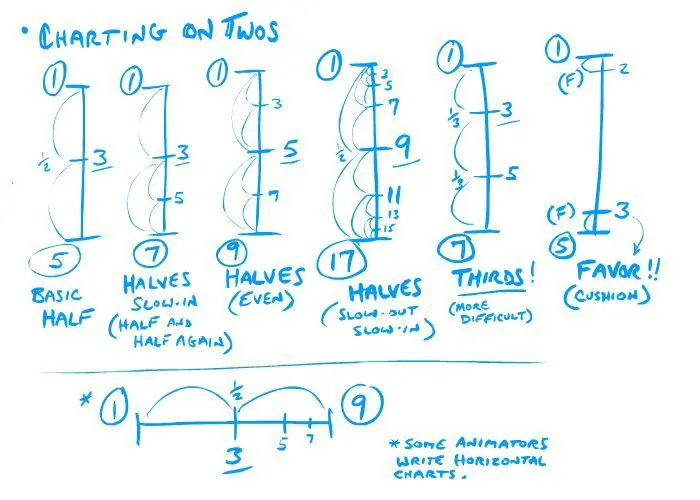 • CHARTING ON TWOS
1
1/2
3
5
BASIC
HALF
1
3
5
7
HALVES
SLOW-IN
(HALF AND
HALF AGAIN)
1
3
5
7
9
HALVES
(EVEN)
1
3
5
7
1/2
9
11
13
15
17
HALVES
(SLOW-OUT
SLOW-IN)
1
1/3
3
1/3
5
7
THIRDS!
(MORE
DIFFICULT)
1
(F)
2
(F)
3
5
FAVOR!!
(CUSHION)
* 1
1/2
3
5
7
9
* SOME ANIMATORS
WRITE HORIZONTAL
CHARTS.